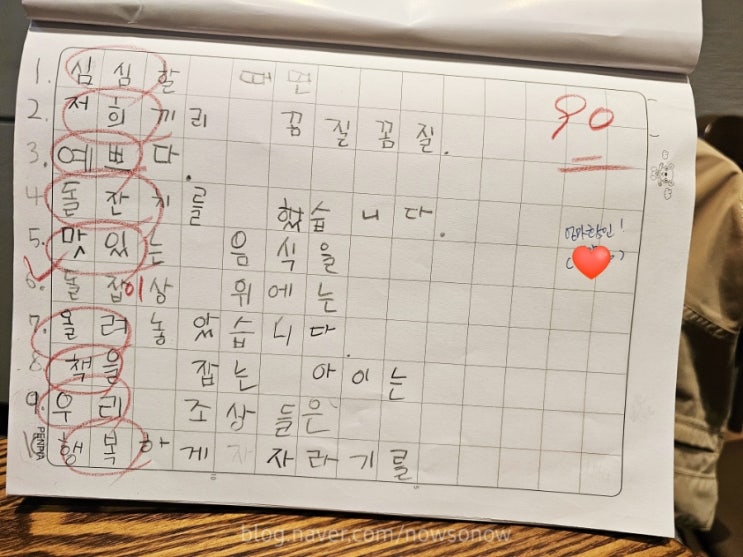 1. 심심할 때면
2. 저희끼리 꼼질꼼질.
90
3. 예쁘다.
4. 돌잔치를 했습니다.
5. 맛있는 음식을
엄마확인!
6. 돌잡이상 위에는
7. 올려놓았습니다.
8. 책을 잡는 아이는
9. 우리 조상들은
10. 행복하게 자라기를
PENPIA
blog.naver.com/nowsonow